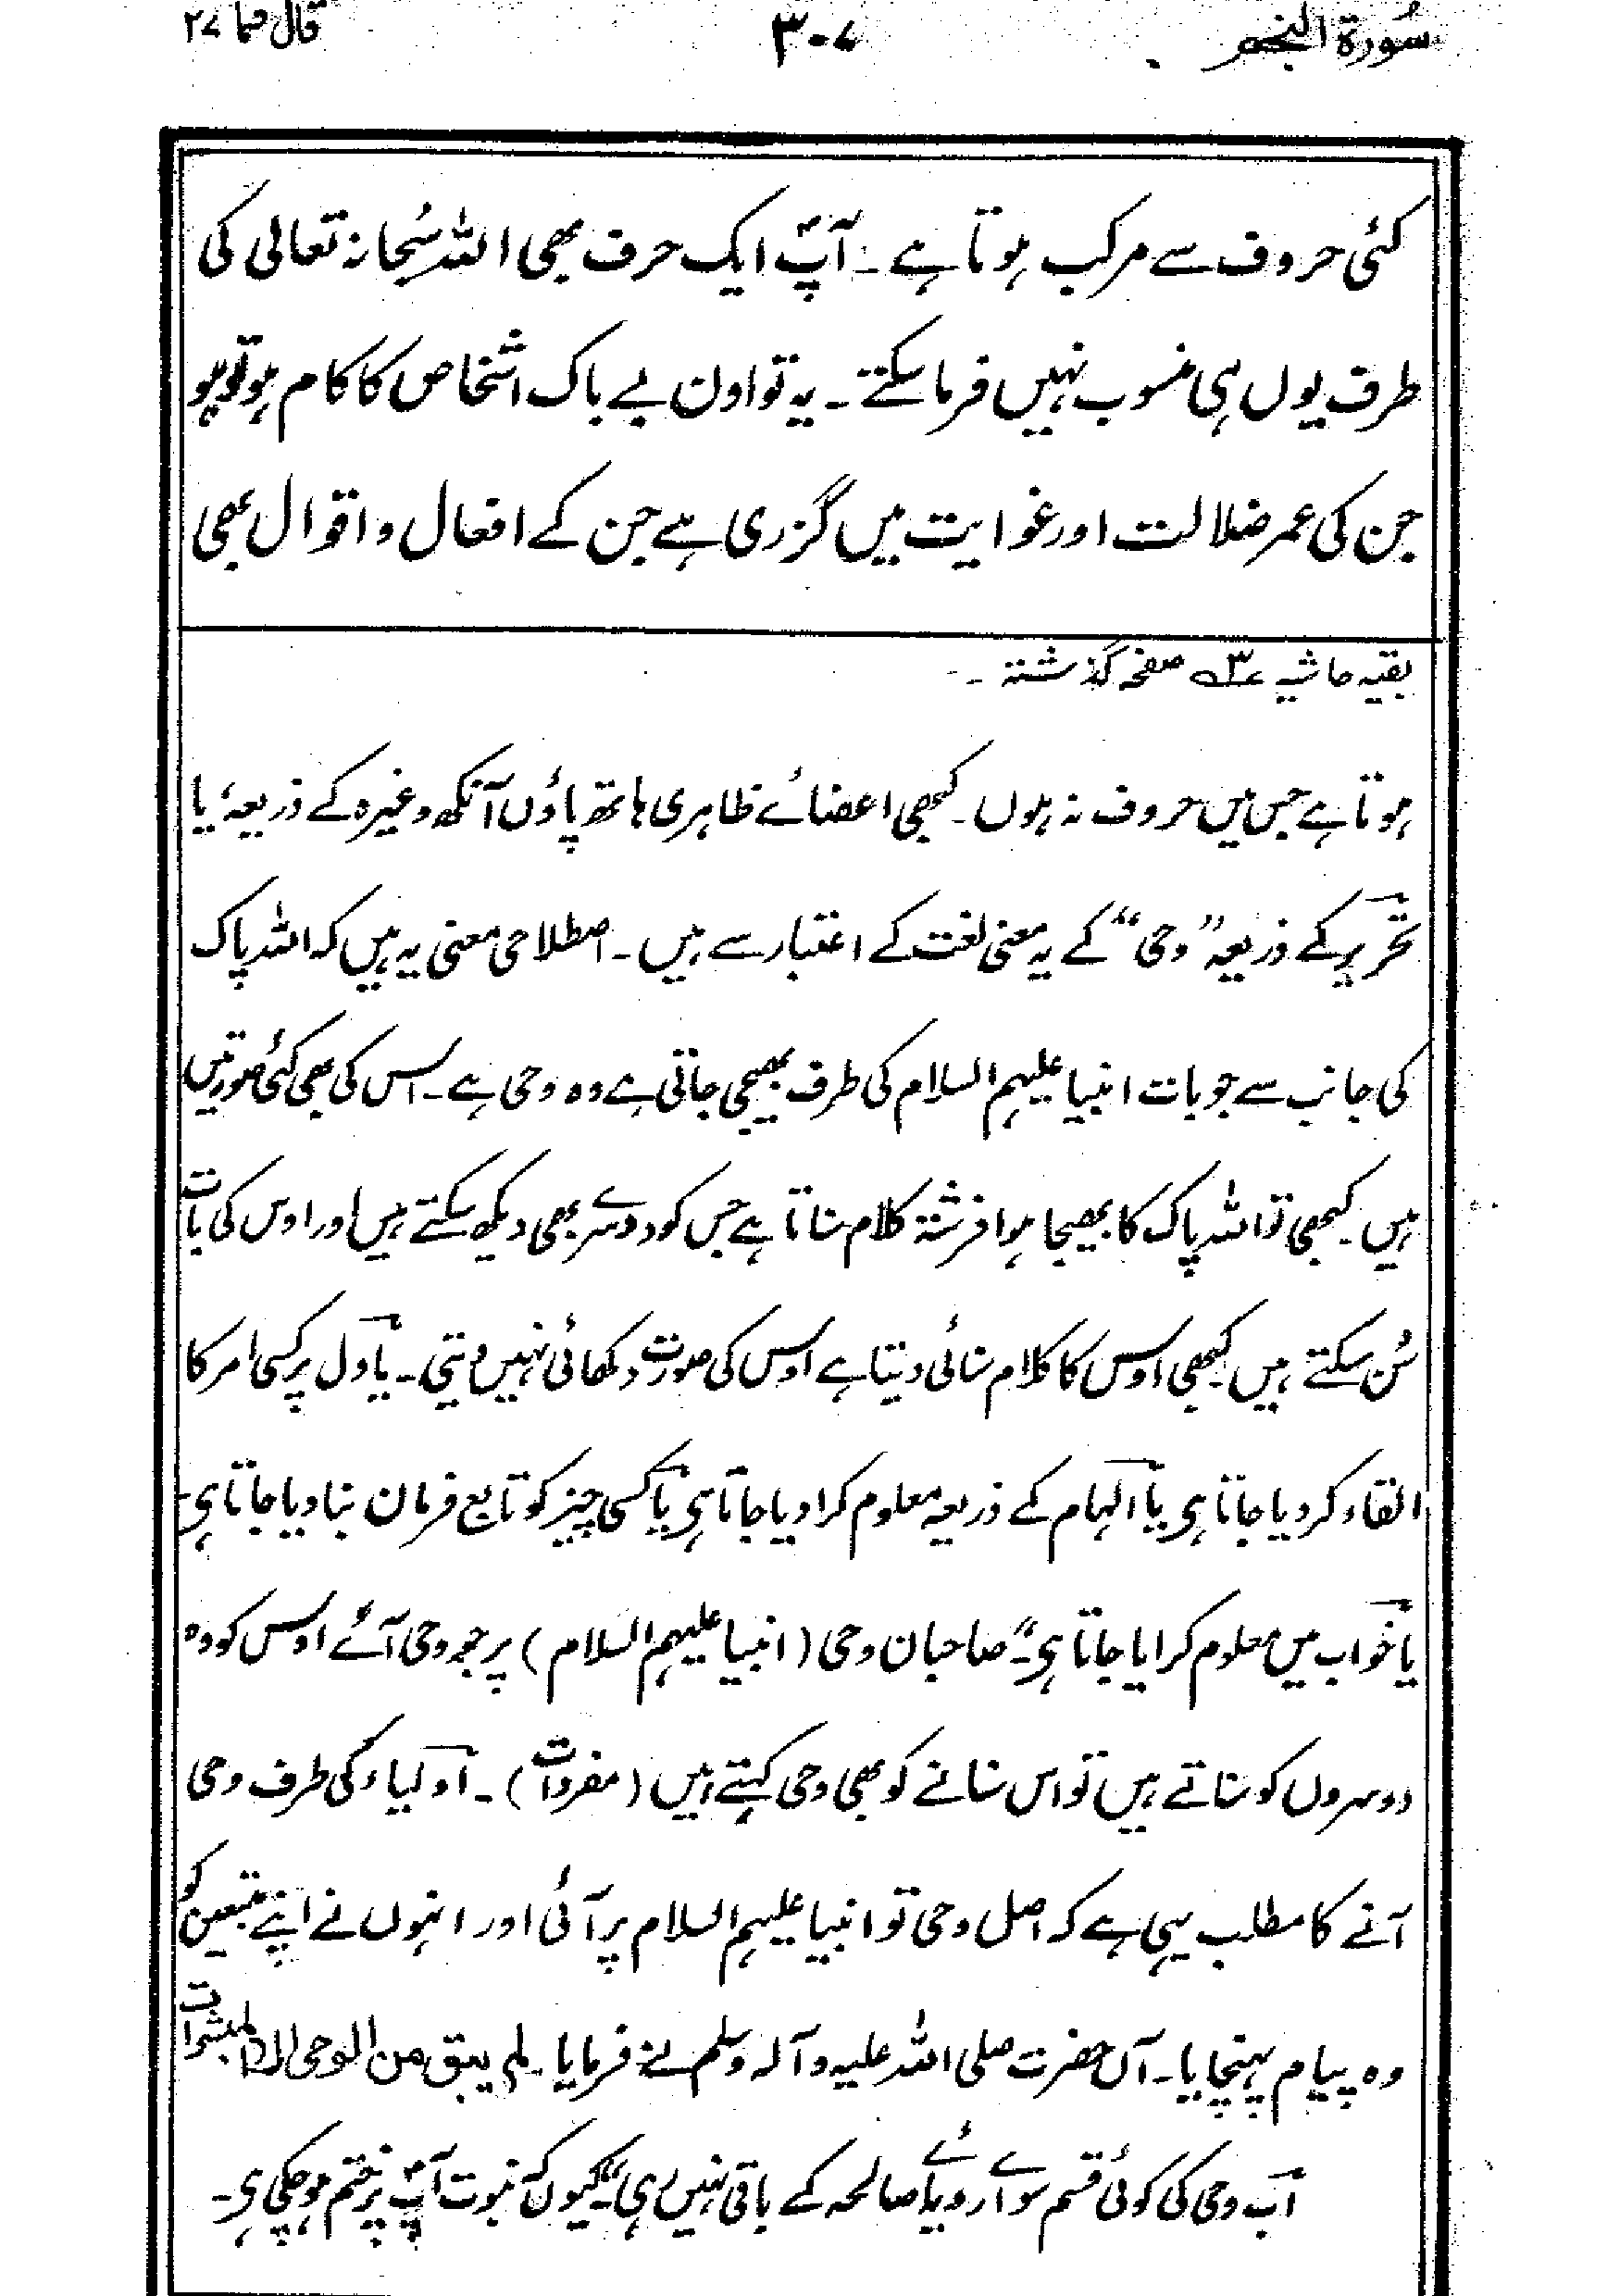 سُورۃ النجم ۳۰۷ قال فما ۲۷
کئی حروف سے مرکب ہوتا ہے ۔ آپؐ ایک حرف بھی اللہ سُبحانہ تعالی کی
طرف یوں ہی منسوب نہیں فرما سکتے ۔ یہ تو اون بے باک اشخاص کا کام ہو تو ہو
جن کی عمر ضلالت اور غوایت میں گزری ہے جن کے افعال و اقوال بھی
بقیہ حاشیہ ۳ صفحہ گذشتہ ۔
ہوتا ہے جس میں حروف نہ ہوں ۔ کبھی اعضائے ظاہری ہاتھ پاؤں آنکھ وغیرہ کے ذریعہ، یا
تحریر کے ذریعہ ”وحی“ کے یہ معنی لغت کے اعتبار سے ہیں ۔ اصطلاحی معنی یہ ہیں کہ اللہ پاک
کی جانب سے جو بات انبیا علیہم السلام کی طرف بھیجی جاتی ہے وہ وحی ہے ۔ اس کی بھی کئی صورتیں
ہیں ۔ کبھی تو اللہ پاک کا بھیجا ہوا فرشتہ کلام سناتا ہے جس کو دوسرے بھی دیکھ سکتے ہیں اور اوس کی بات
سُن سکتے ہیں ۔ کبھی اوس کا کلام سنائی دیتا ہے اوس کی صورت دکھائی نہیں دیتی ۔ یا دل پر کسی امر کا
القاء کر دیا جاتا ہی یا الہام کے ذریعہ معلوم کرا دیا جاتا ہی یا کسی چیز کو تابع فرمان بنا دیا جاتا ہی ۔
یا خواب میں معلوم کرایا جاتا ہی“ ۔ صاحبان وحی (انبیا علیہم السلام) پر جو وحی آئے اوس کو وہ
دوسروں کو سناتے ہیں تو اس سنانے کو بھی وحی کہتے ہیں (مفردات) ۔ اولیاء کی طرف وحی
آنے کا مطلب یہی ہے کہ اصل وحی تو انبیا علیہم السلام پر آئی اور انہوں نے اپنے متبعین کو
وہ پیام پہنچایا ۔ آں حضرت صلی اللہ علیہ وآلہ وسلم نے فرمایا ۔ لم یبق من الوحی الا المبشرات
اب وحی کی کوئی قسم سوائے رویائے صالحہ کے باقی نہیں رہی“ ۔ کیوں کہ نبوت آپؐ پر ختم ہو چکی ہی ۔